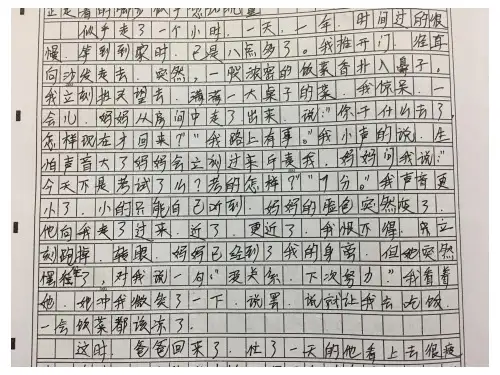 似乎走了一个小时,一天,一年,时间过的很
慢,等到到家时,已是八点多了。我推开门,径直
向沙发走去,突然,一股浓密的饭菜香扑入鼻子,
我立刻抬头望去,满满一大桌子的菜,我惊呆,一
会儿,妈妈从房间中走了出来,说:“你干什么去了,
怎样现在才回来?”“我路上有事。”我小声的说,生
怕声音大了妈妈会立刻过来斥责我,妈妈问我说:“
今天不是考试了么?考的怎样?”“7分。”我声音更
小了,小的只能自己听到,妈妈的脸色突然变了,
他向我走了过来,近了,更近了,我恨不得,立
刻跑掉,转眼,妈妈已经到了我的身离,但她突然
了,对我说一句:“没关系,下次努力”我看着
她,她冲我微笑了一下,说罢,说就让我去吃饭,
一会饭菜都该凉了。
这时,爸爸回来了,忙了一天的他看上去很疲